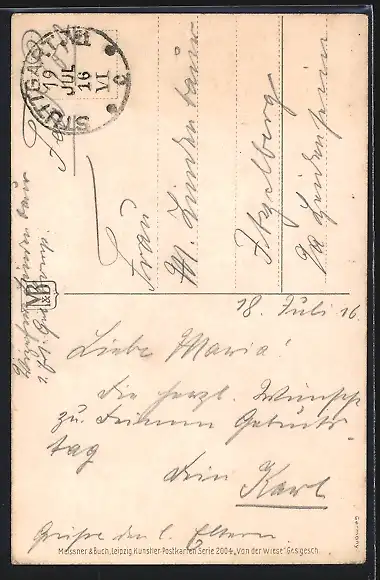 STUTTGART
19 JUL 16
VI
C
Frau
M. Lindenbaur
Itzelberg
M&B
18. Juli 16
Liebe Maria!
Die herzl. Wünsche
zu Deinem Geburts-
tag
Dein
Karl
Grüße den l. Eltern
Meissner & Buch, Leipzig, Künstler-Postkarten Serie 2004 „Von der Wiese“ Ges. gesch.
Germany